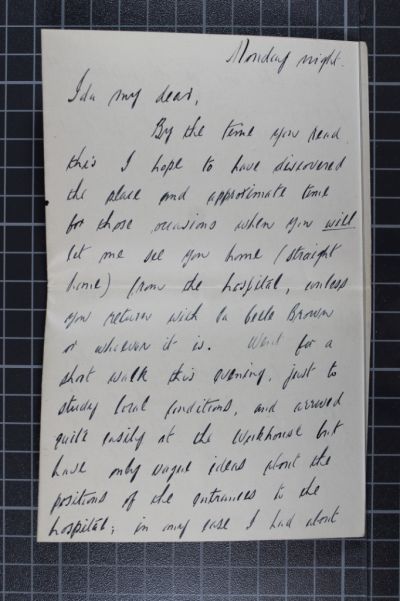 Monday night.
Ida my dear,
By the time you read
this I hope to have discovered
the place and approximate time
for those occasions when you will
let me see you home (straight
home) from the hospital, unless
you return with Brown
or whoever it is. Went for a
short walk this evening, just to
study local conditions, and arrived
quite easily at the Workhouse but
have only vague ideas about the
positions of the entrances to the
hospital; in any case I had about